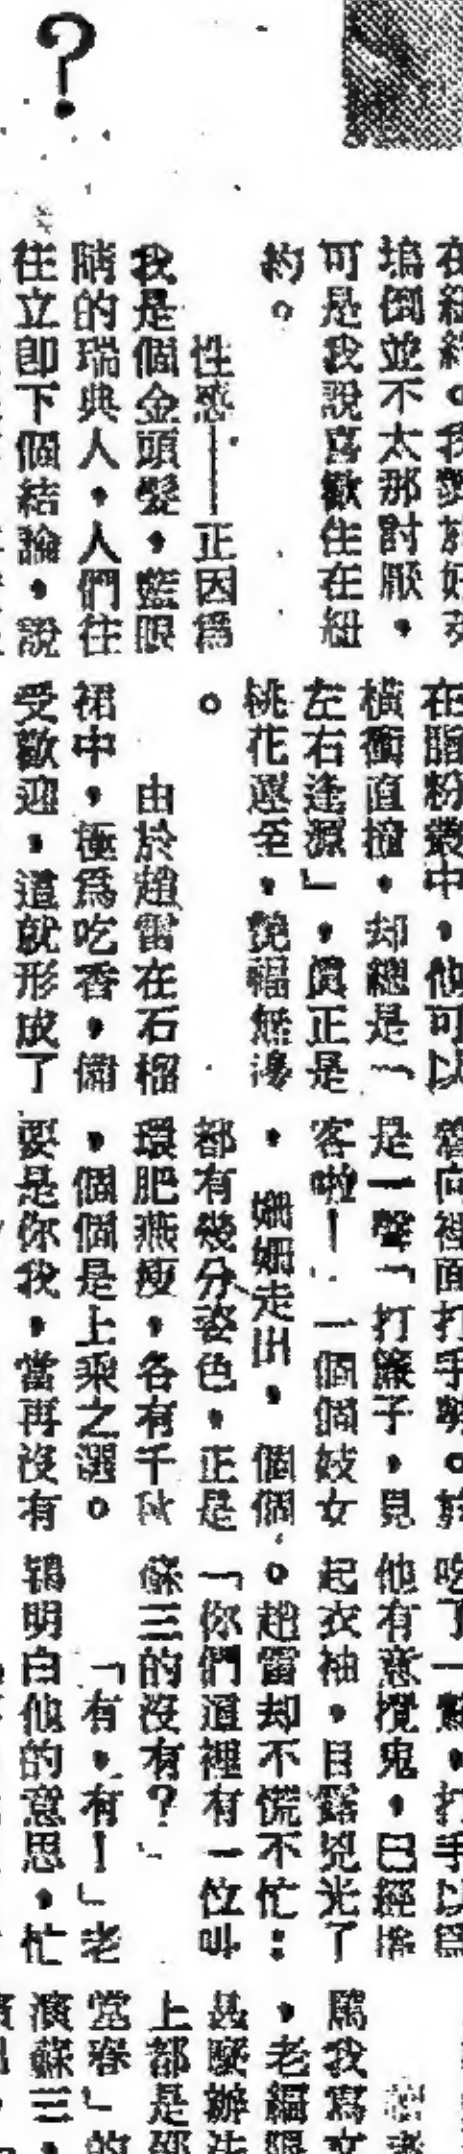 ？
塢倒並不太那討厭，
可是我說喜歡住在紐
約。
性惑——正因爲
我是個金頭髮，藍眼
睛的瑞典人，人們往
往立卽下個結論，說
在脂粉叢中，他可以
橫衝直撞，却總是「
左右逢源」，眞正是
桃花運至，艷福無邊
。
由於趙雷在石榴
裙中，極爲吃香，備
受歡迎，這就形成了
向裡面打手勢。於
是一聲「打簾子，見
客啦！一個個妓女
，姍姍走出，個個
都有幾分姿色，正是
環肥燕瘦，各有千秋
，個個是上乘之選。
要是你我，當再沒有
吃了一驚，打手以爲
他有意攪鬼，已經
起衣袖，目露兇光了
。趙雷却不慌不忙：
「你們這裡有一位叫
蘇三的沒有？」
「有，有！」老
鴇明白他的意思，忙
罵我寫
，老編
甚麼辦
上都是
堂春」的
演蘇三，